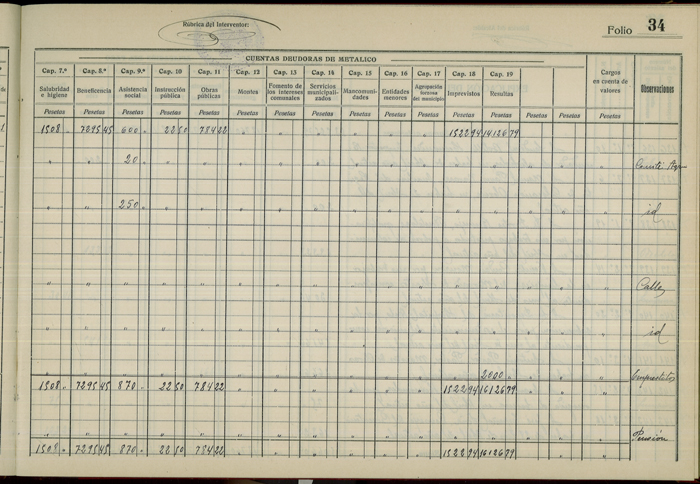 Rúbrica del Interventor:
Folio 34
CUENTAS DEUDORAS DE METALICO
Cap. 7.º Cap. 8.º Cap. 9.º Cap. 10 Cap. 11 Cap. 12 Cap. 13 Cap. 14 Cap. 15 Cap. 16 Cap. 17 Cap. 18 Cap. 19
Salubridad e higiene Beneficencia Asistencia social Instrucción pública Obras públicas Montes Fomento de los intereses comunales Servicios municipalizados Mancomunidades Entidades menores Agrupación forzosa del municipio Imprevistos Resultas Cargos en cuenta de valores Observaciones
Pesetas Pesetas Pesetas Pesetas Pesetas Pesetas Pesetas Pesetas Pesetas Pesetas Pesetas Pesetas Pesetas Pesetas Pesetas Pesetas
1508 " 7295 45 600 " 22 50 784 22 " " " " " " 1522 94 14126 79 " " "
" " 20 " " " " " " " " " " " " " "
" " 250 " " " " " " " " " " " " " " id
" " " " " " " " " " " " " " " " Calles
" " " " " " " " " " " " " " " " id
" " " " " " " " " " " " 2000 " " " "
1508 " 7295 45 870 " 22 50 784 22 " " " " " " 1522 94 16126 79 " " "
" " " " " " " " " " " " " " " " Pensión
1508 " 7295 45 870 " 22 50 784 22 " " " " " " 1522 94 16126 79 " " "